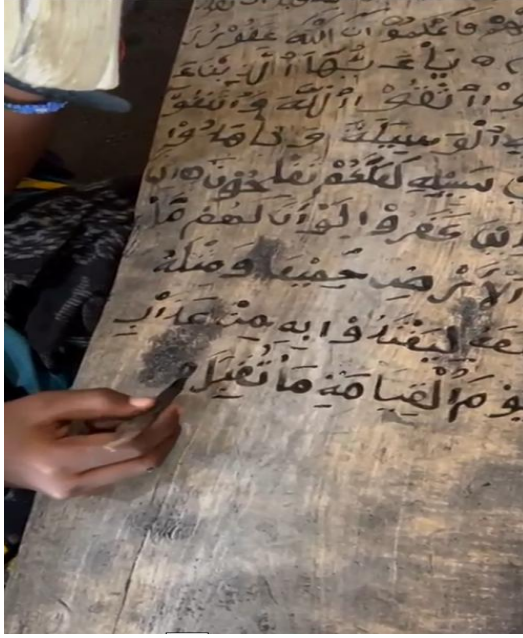 فاعلموا أن الله غفور ر
م ه يأيها الذين ء
وا اتقوا الله وابتغو
الوسيلة وجاهدوا
سبيله لعلكم تفلحون ه ال
ين كفروا لو أن لهم ما
الأرض جميعا ومثله
معه ليفتدوا به من عذاب
يوم القيامة ما تقبل